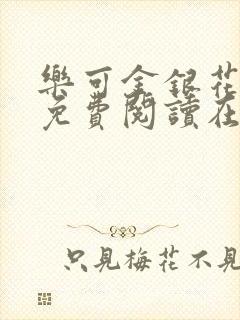 樂可金銀花
免費閱讀在
只見梅花不見